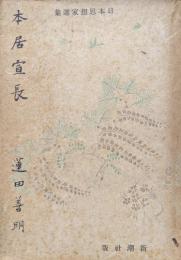 日本思想家選集
本居宣長
蓮田善明
新潮社版